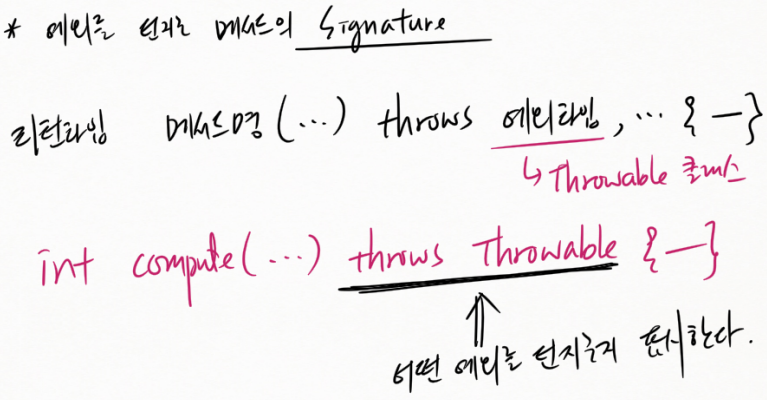 * 예외를 던지는 메서드의 Signature
리턴타입 메서드명 (...) throws 예외타입, ... { — }
↳ Throwable 클래스
int compute(...) throws Throwable { — }
어떤 예외를 던지는지 표시한다.